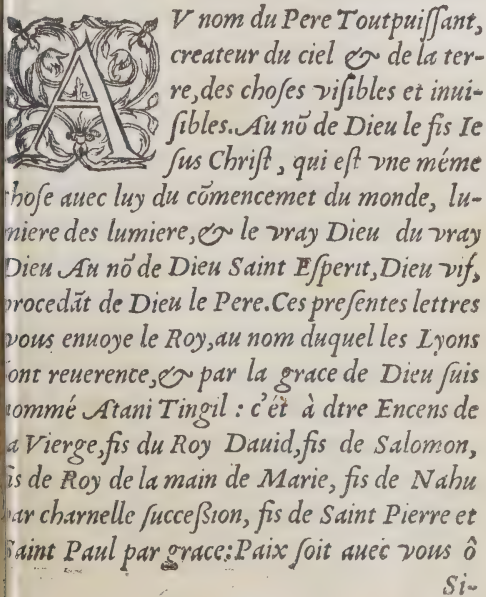 AV nom du Pere Toutpuiſſant,
createur du ciel & de la ter-
re, des choſes viſibles et inui-
ſibles. Au nõ de Dieu le fis Ie
ſus Chriſt, qui eſt vne méme
hoſe auec luy du cõmencemet du monde, lu-
miere des lumiere, & le vray Dieu du vray
Dieu Au nõ de Dieu Saint Eſperit, Dieu vif,
rocedãt de Dieu le Pere. Ces preſentes lettres
vous enuoye le Roy, au nom duquel les Lyons
ont reuerence, & par la grace de Dieu ſuis
nommé Atani Tingil : c'ét à dtre Encens de
a Vierge, fis du Roy Dauid, fis de Salomon,
fis de Roy de la main de Marie, fis de Nahu
ar charnelle ſucceſsion, fis de Saint Pierre et
Saint Paul par grace: Paix ſoit auec vous ô
Si-